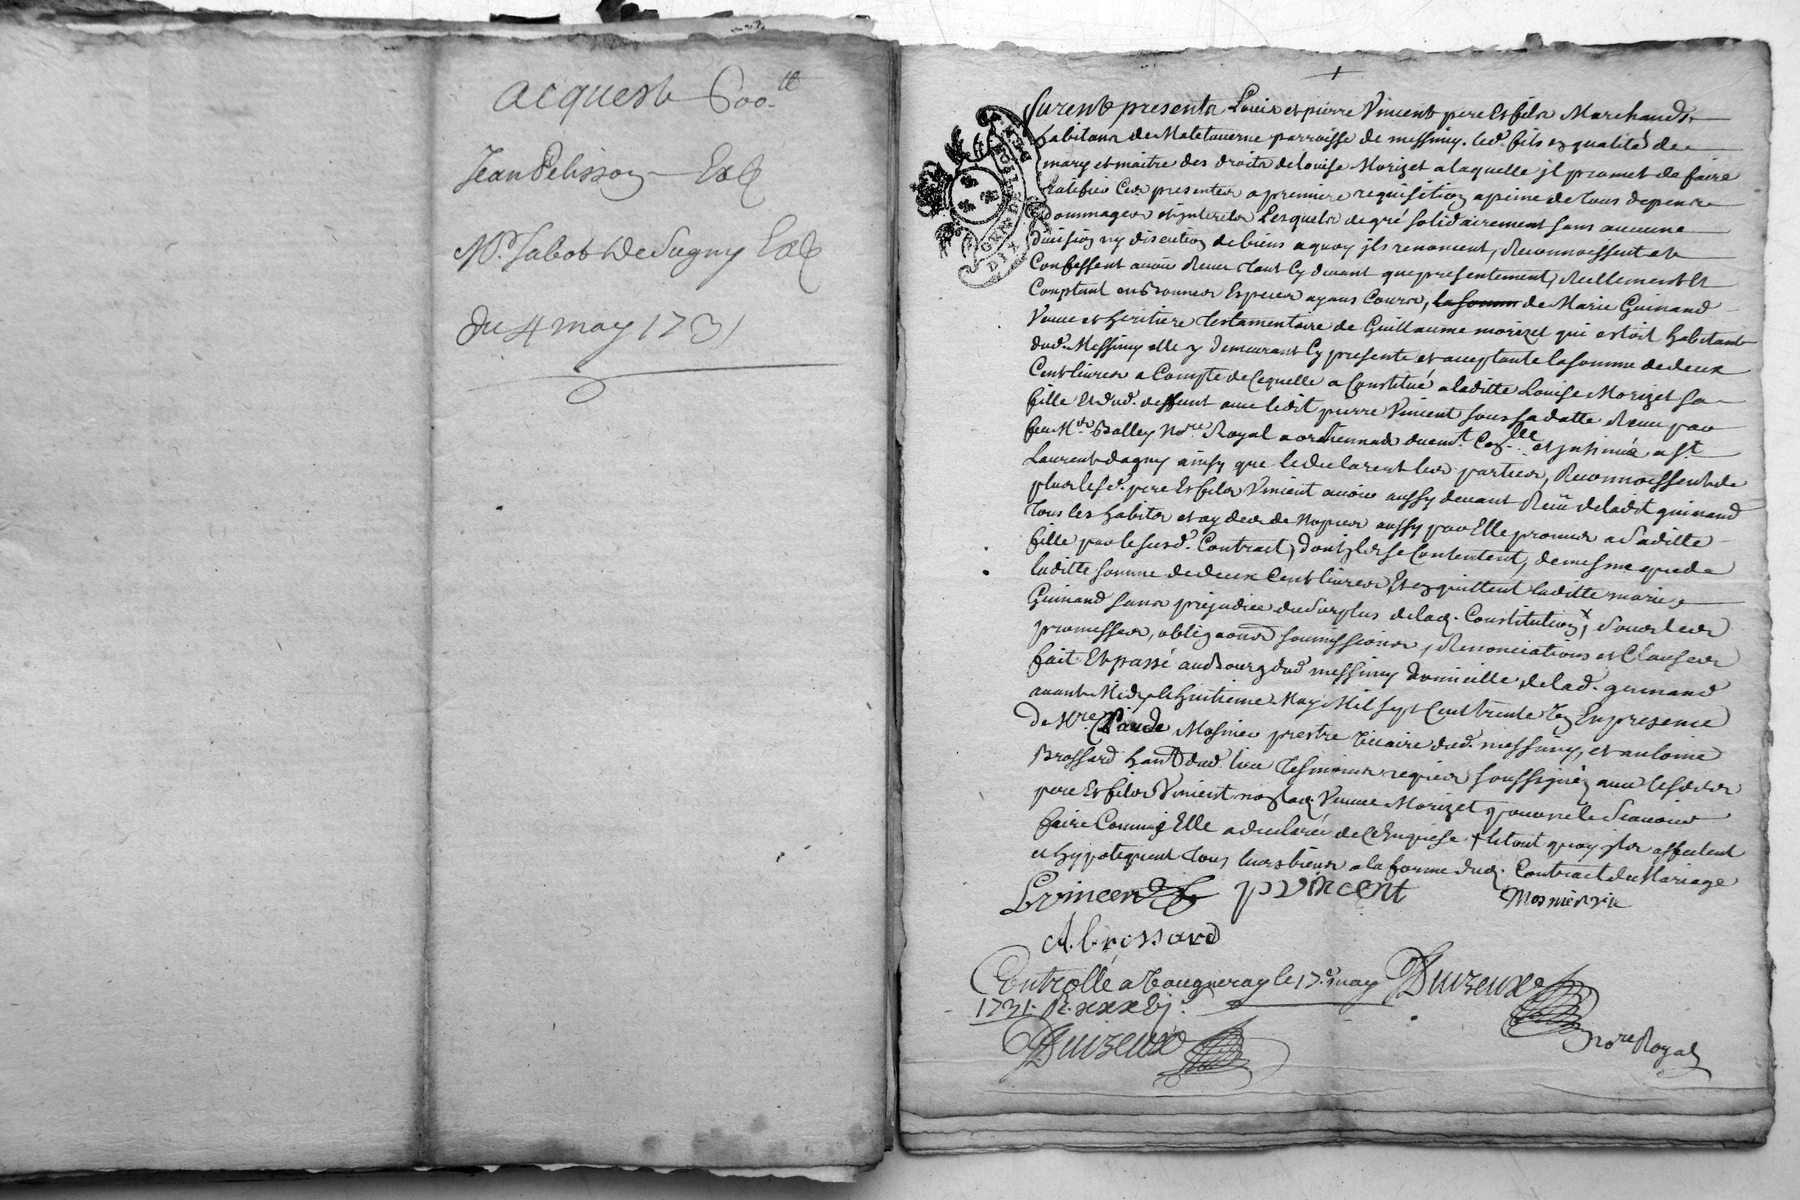 acquest 600 tt
Jean Pelisson Ext
Mr. Jabot De Sugny Ext
du 4 may 1731
furent presents Louis et pierre Vincent pere Et fils Marchands
habitans de Malataverne parroisse de messimy. led. fils en qualité de
mary et maitre des droits de Louise Morizet a laquelle jl promet de faire
ratifier Ces presentes a premiere requisition a peine de tous depens
dommages et interets Lesquels de gré solidairement sans aucune
division ny discution de biens a quoy jls renoncent, Reconnoissent et
Confessent avoir Receu tant Cy devant que presentement, Reellement Et
Comptant en Bonnes Especes ayans Cours, la somme de Marie Guinand
Veuve et heritiere testamentaire de Guillaume morizet qui estoit habitant
dud. Messimy elle y demeurant Cy presente et acceptante la somme de deux
Cent livres a Compte de Cequelle a Constitué a laditte Louise Morizet sa
fille Et dud. deffunt avec ledit pierre Vincent sous sa datte Receu par
feu Mr. Balley Nore. Royal
Laurent dagny ainsy que le declarent les parties, Reconnoissent de
plus lesd. pere Et fils Vincent avoir aussy devant Receu de ladt guinand
tous les habits et
fille par le susd. Contract, dont jls se Contentent, de mesme que de
laditte somme de deux Cent livres Et en quittent laditte marie
Guinand sans prejudice du surplus de lad. Constitution, x sous les
promesses, obligaons soumissions, Renonciations et Clauses
fait Et passé au Bourg dud messimy domicille de lad. guinand
avant Midy le huitieme May Mil sept Cent trente Un En presence
De Mre Claude Mosnier prestre Vicaire dud. messimy, et antoine
Brossard hant dud. lieu tesmoins requis soussignéz avec lesdits
pere Et fils Vincent non lad. Veuve Morizet pour ne le scavoir
faire Comme Elle a declaré de Ce Enquise + Et tout quoy jls affectent
et hypotequent tous leurs biens a la forme dud. Contract de Mariage
L vincend p vincent Mosnier vic
A. brossard
Controllé a Vaugneray le 17e. may
1731. R.
Duvzeux
nore Royal